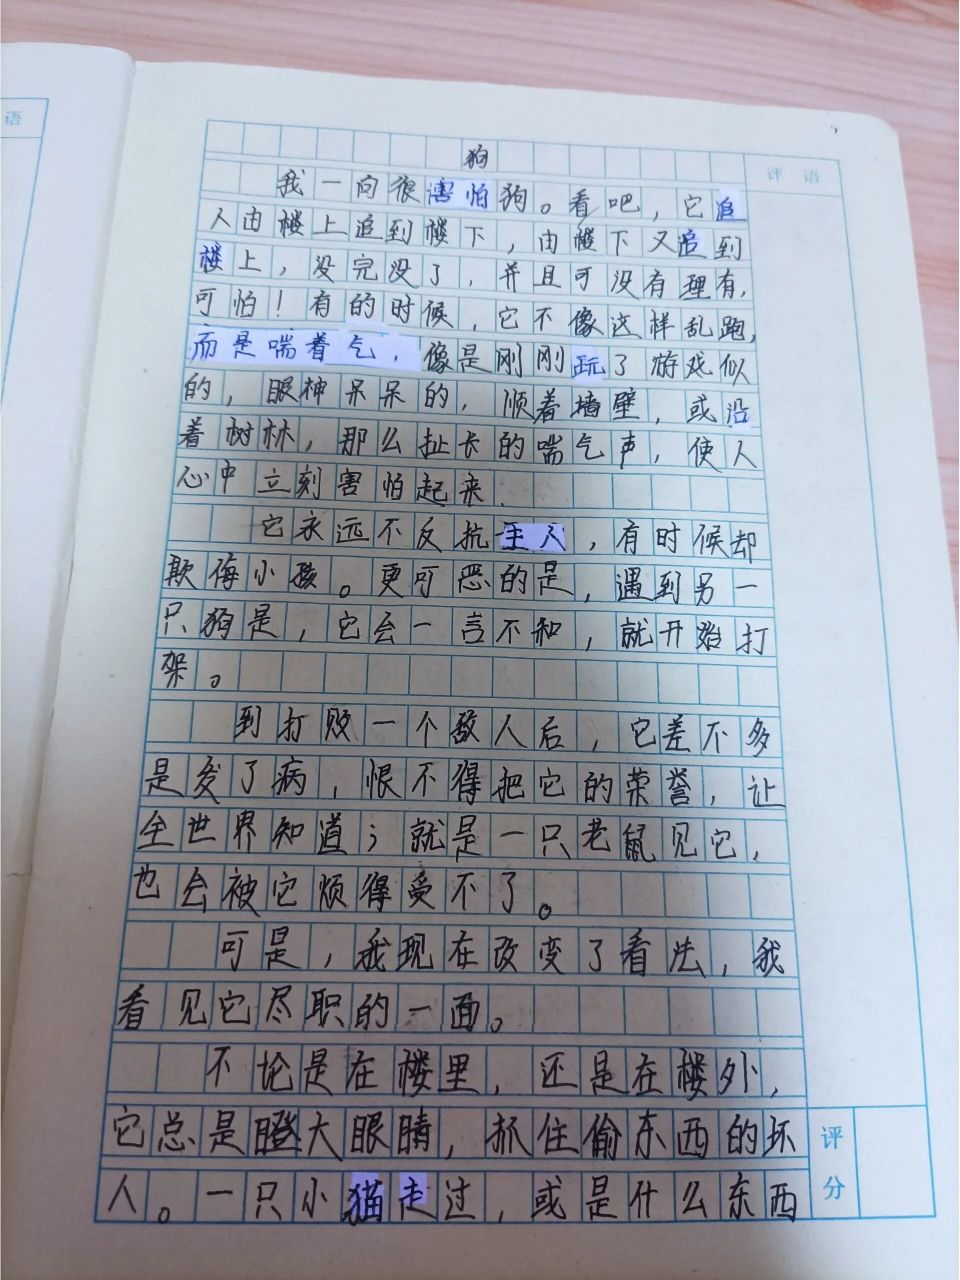 语
狗
评 语
我一向很害怕狗。看吧，它追
人由楼上追到楼下，由楼下又追到
楼上，没完没了，并且可没有理有，
可怕！有的时候，它不像这样乱跑，
而是喘着气，像是刚刚玩了游戏似
的，眼神呆呆的，顺着墙壁，或沿
着树林，那么扯长的喘气声，使人
心中立刻害怕起来.
它永远不反抗主人，有时候却
欺侮小孩。更可恶的是，遇到另一
只狗是，它会一言不和，就开始打
架。
到打败一个敌人后，它差不多
是发了病，恨不得把它的荣誉，让
全世界知道；就是一只老鼠见它，
也会被它烦得受不了。
可是，我现在改变了看法，我
看见它尽职的一面。
不论是在楼里，还是在楼外，
它总是瞪大眼睛，抓住偷东西的坏
人。一只小猫走过，或是什么东西
评
分